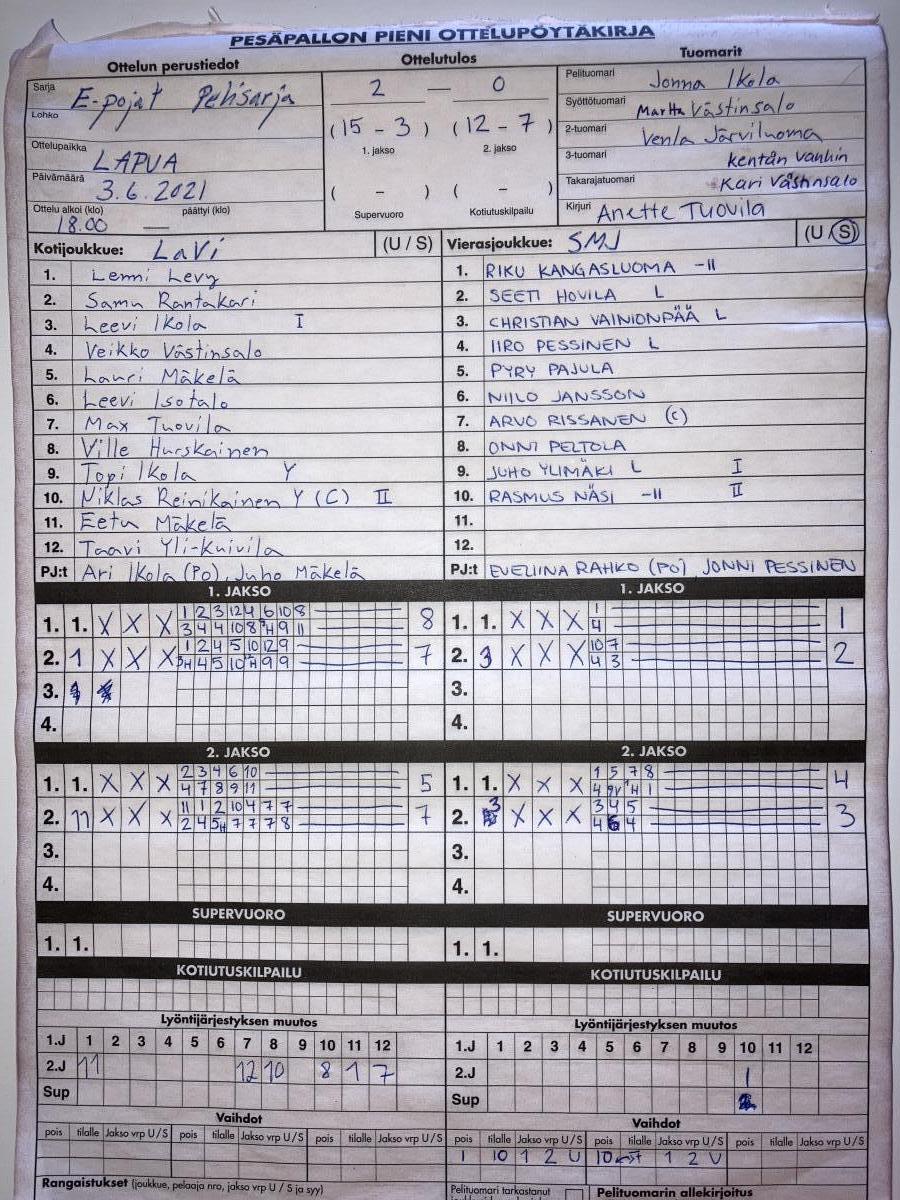 PESÄPALLON PIENI OTTELUPÖYTÄKIRJA
Ottelun perustiedot
Sarja E-pojat Pehisarja
Lohko
Ottelupaikka LAPUA
Päivämäärä 3.6.2021
Ottelu alkoi (klo) 18.00 päättyi (klo) —
Ottelutulos
2 — 0
(15 - 3) (12 - 7)
1. jakso 2. jakso
( - ) ( - )
Supervuoro Kotiutuskilpailu
Tuomarit
Pelituomari Jonna Ikola
Syöttötuomari Martta Västinsalo
2-tuomari Venla Järviluoma
3-tuomari kentän vanhin
Takarajatuomari Kari Västinsalo
Kirjuri Anette Tuovila
Kotijoukkue: LaVi (U / S)
1. Lenni Levy
2. Samu Rantakari
3. Leevi Ikola I
4. Veikko Västinsalo
5. Lauri Mäkelä
6. Leevi Isotalo
7. Max Tuovila
8. Ville Hurskainen
9. Topi Ikola Y
10. Niklas Reinikainen Y (C) II
11. Eetu Mäkelä
12. Taavi Yli-Kuivila
PJ:t Ari Ikola (Po), Juho Mäkelä
Vierasjoukkue: SMJ (U / S)
1. RIKU KANGASLUOMA -II
2. SEETI HOVILA L
3. CHRISTIAN VAINIONPÄÄ L
4. IIRO PESSINEN L
5. PYRY PAJULA
6. NIILO JANSSON
7. ARVO RISSANEN (C)
8. ONNI PELTOLA
9. JUHO YLIMÄKI L I
10. RASMUS NÄSI -II II
11.
12.
PJ:t EVELIINA RAHKO (PO) JONNI PESSINEN
1. JAKSO
1. 1. X X X 1 2 3 12 4 6 10 8
3 4 4 10 8 9 11 8
2. 1 X X X 1 2 4 5 10 12 9
4 5 10 9 9 7
3.
4.
1. JAKSO
1. 1. X X X 1
4 1
2. 3 X X X 10 7
4 3 2
3.
4.
2. JAKSO
1. 1. X X X 2 3 4 6 10
4 7 8 9 11 5
2. 11 X X X 11 1 2 10 4 7 7
2 4 5H 7 7 7 8 7
3.
4.
2. JAKSO
1. 1. X X X 1 5 7 8
4 1 4
2. 3 X X X 3 4 5
4 6 4 3
3.
4.
SUPERVUORO
1. 1.
SUPERVUORO
1. 1.
KOTIUTUSKILPAILU
KOTIUTUSKILPAILU
Lyöntijärjestyksen muutos
1.J 1 2 3 4 5 6 7 8 9 10 11 12
2.J 11 12 10 8 1 7
Sup
Lyöntijärjestyksen muutos
1.J 1 2 3 4 5 6 7 8 9 10 11 12
2.J 1
Sup
Vaihdot
pois tilalle Jakso vrp U / S pois tilalle Jakso vrp U / S pois tilalle Jakso vrp U / S
Vaihdot
pois tilalle Jakso vrp U / S pois tilalle Jakso vrp U / S pois tilalle Jakso vrp U / S
1 10 1 2 U 10 1 2 U
Rangaistukset (joukkue, pelaaja nro, jakso vrp U / S ja syy)
Pelituomari tarkastanut
Pelituomarin allekirjoitus